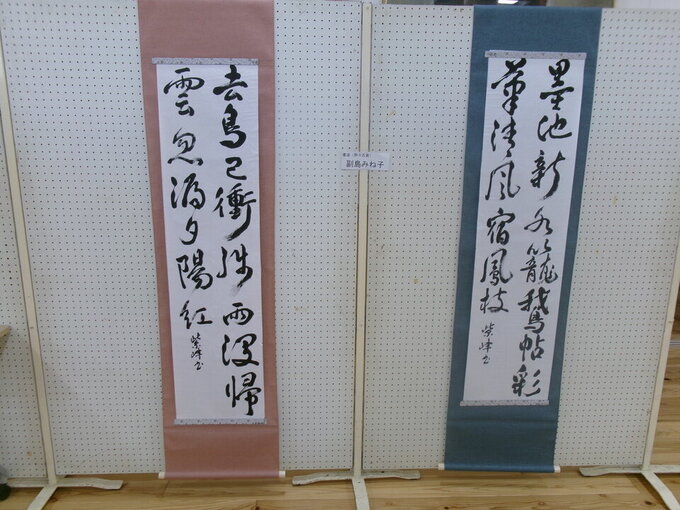 墨池新水籠鵞帖彩
筆清風宿鳳枝
紫峰書
副島みね子
去鳥已衝残雨没帰
雲忽漏夕陽紅
紫峰書